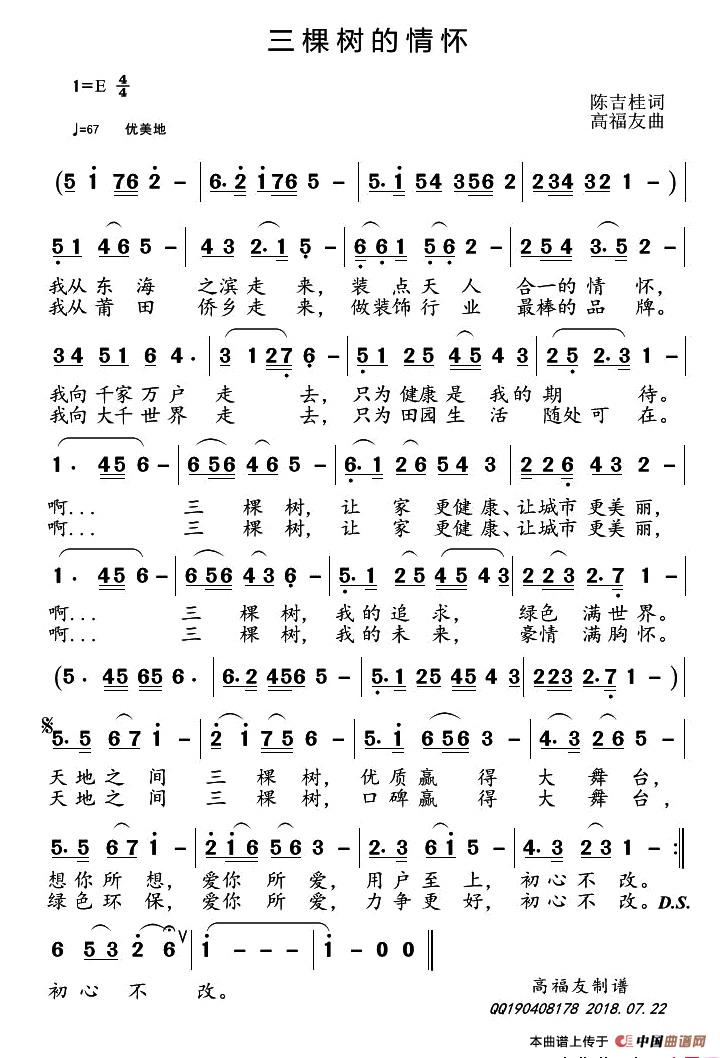 三棵树的情怀
1=E 4/4
陈吉桂词
♩=67 优美地
高福友曲
(5 1 76 2 - | 6. 2 176 5 - | 5. 1 54 356 2 | 234 32 1 - )
51 465 2 - | 43 2.1 5 - | 661 56 2 - | 254 3.5 2 -
我从东海 之滨走来，装点天人 合一的情怀，
我从莆田 侨乡走来，做装饰行业 最棒的品牌。
34 51 6 4. | 3 127 6 - | 51 25 454 3 | 25 2.3 1 -
我向千家万户走 去，只为健康是 我的期 待。
我向大千世界走 去，只为田园生 活 随处可 在。
1. 45 6 - | 656 465 5 - | 6. 1 26 54 3 | 226 43 2 -
啊... 三 棵 树，让 家 更健康、让城市更美丽，
啊... 三 棵 树，让 家 更健康、让城市更美丽，
1. 45 6 - | 656 43 6 - | 5. 1 25 45 43 | 223 2.7 1 -
啊... 三 棵 树，我的追 求， 绿色 满世界。
啊... 三 棵 树，我的未 来， 豪情 满胸怀。
(5. 45 65 6. | 6.2 456 5 - | 5.1 25 45 3 | 223 2.7 1 - )
5.5 67 1 - | 2 1 75 6 | 5.1 66 56 - | 4.3 26 5 -
天地之 间 三 棵 树，优质赢 得 大 舞 台，
天地之 间 三 棵 树，口碑赢 得 大 舞 台，
5.5 67 1 - | 216 56 3 - | 2.3 61 5 - | 4.3 23 1 - :||
想你所 想，爱你 所 爱，用户至 上，初心不 改。
绿色环 保，爱你 所 爱，力争更 好，初心不 改。D.S.
6 53 2 6 | 1 - - - | 1 - 0 0 ||
初 心 不 改。
高福友制谱
QQ190408178 2018.07.22
本曲谱上传于 中国曲谱网